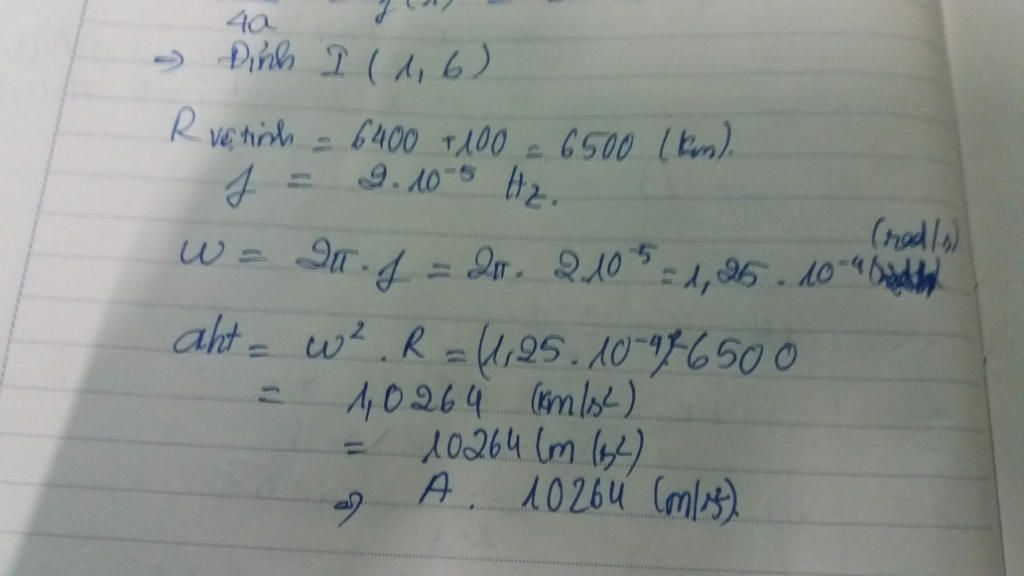 4a
=> Đỉnh I (1, 6)
R vệ tinh = 6400 + 100 = 6500 (km).
f = 2.10⁻⁵ Hz.
(rad/s)
w = 2π.f = 2π. 2.10⁻⁵ = 1,25 . 10⁻⁴
aht = w². R = (1,25 . 10⁻⁴)². 6500
= 1,0264 (km/s²)
= 10264 (m/s²)
=> A. 10264 (m/s²).